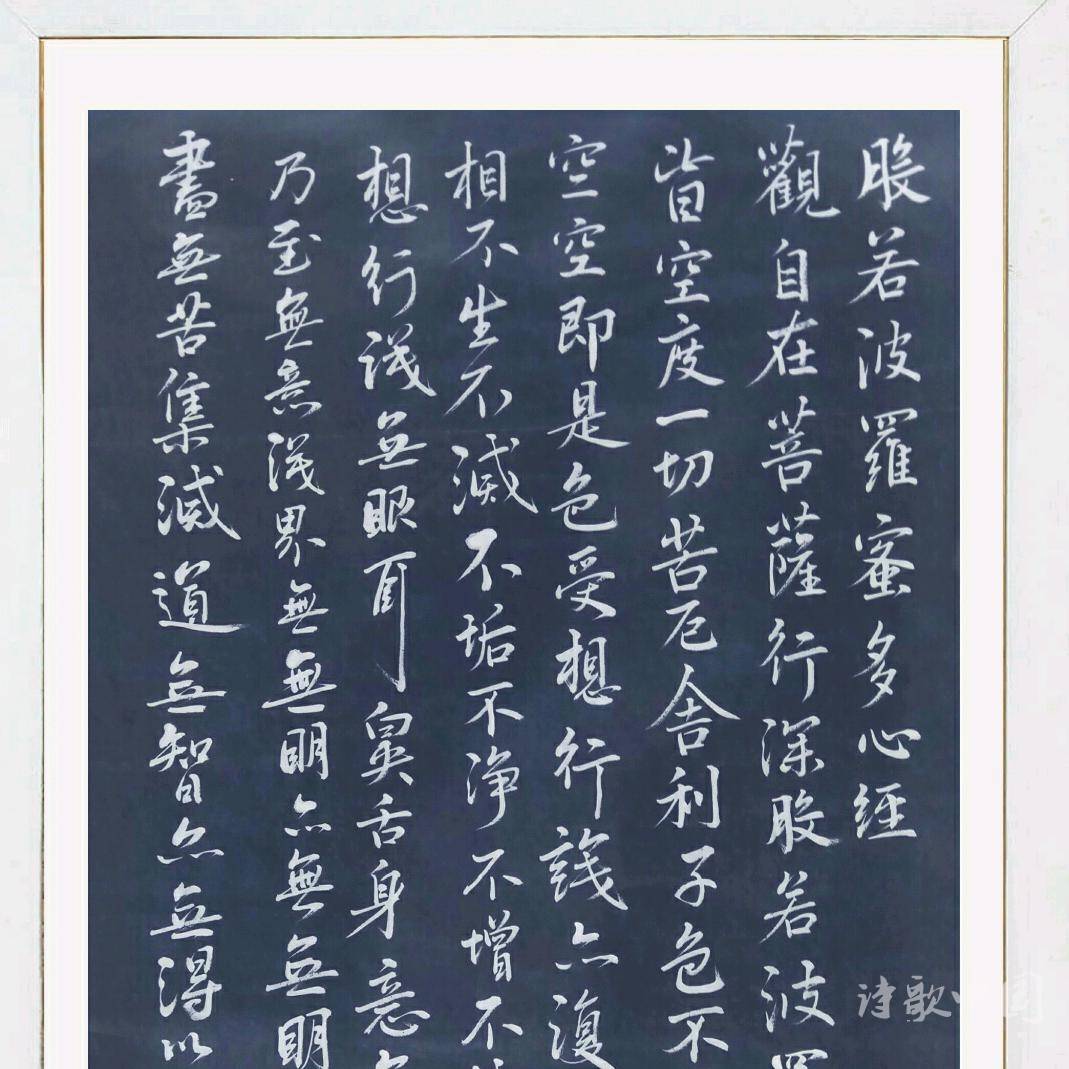 般若波羅蜜多心經
觀自在菩薩行深般若波羅
皆空度一切苦厄舍利子色不
空空即是色受想行識亦復
相不生不滅不垢不净不增不
想行識無眼耳鼻舌身意
乃至無意識界無無明亦無無明
盡無苦集滅道無智亦無得以
诗歌